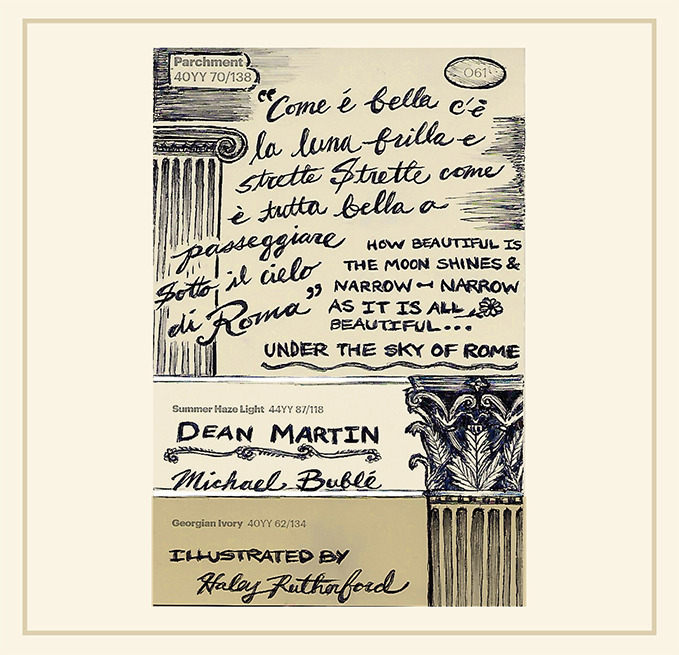 Parchment
40YY 70/138
061
"Come é bella c'è
la luna brilla e
strette Strette come
è tutta bella a
passeggiare
Sotto il cielo
di Roma"
HOW BEAUTIFUL IS
THE MOON SHINES &
NARROW - NARROW
AS IT IS ALL
BEAUTIFUL...
UNDER THE SKY OF ROME
Summer Haze Light 44YY 87/118
DEAN MARTIN
Michael Bublé
Georgian Ivory 40YY 62/134
ILLUSTRATED BY
Haley Rutherford